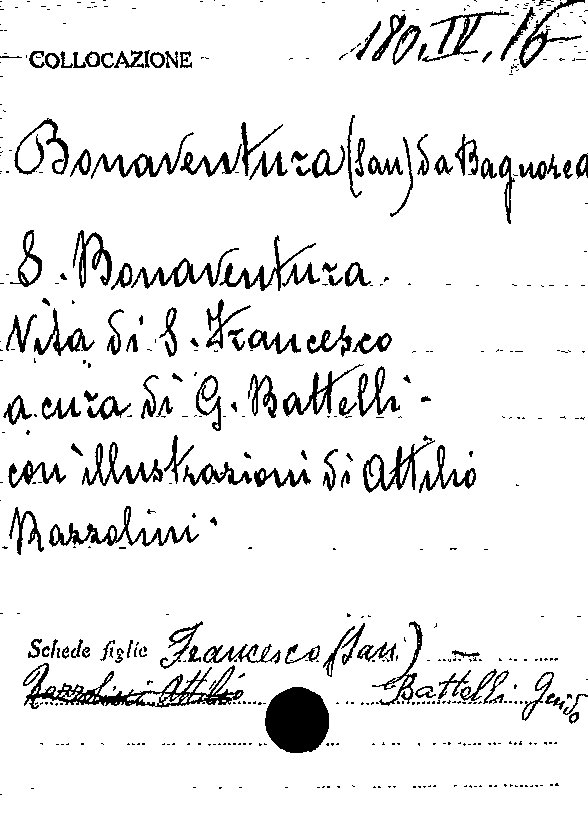 COLLOCAZIONE 180.IV.16
Bonaventura (San) da Bagnorea
S. Bonaventura.
Vita di S. Francesco
a cura di G. Battelli -
con illustrazioni di Attilio
Razzolini.
Schede figlie Francesco (San) —
Razzolini Attilio Battelli Guido